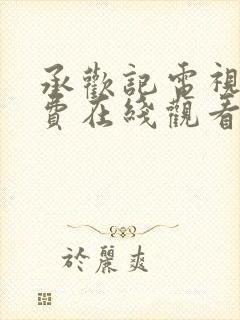 承歡記電視
費在綫觀看
於麗爽